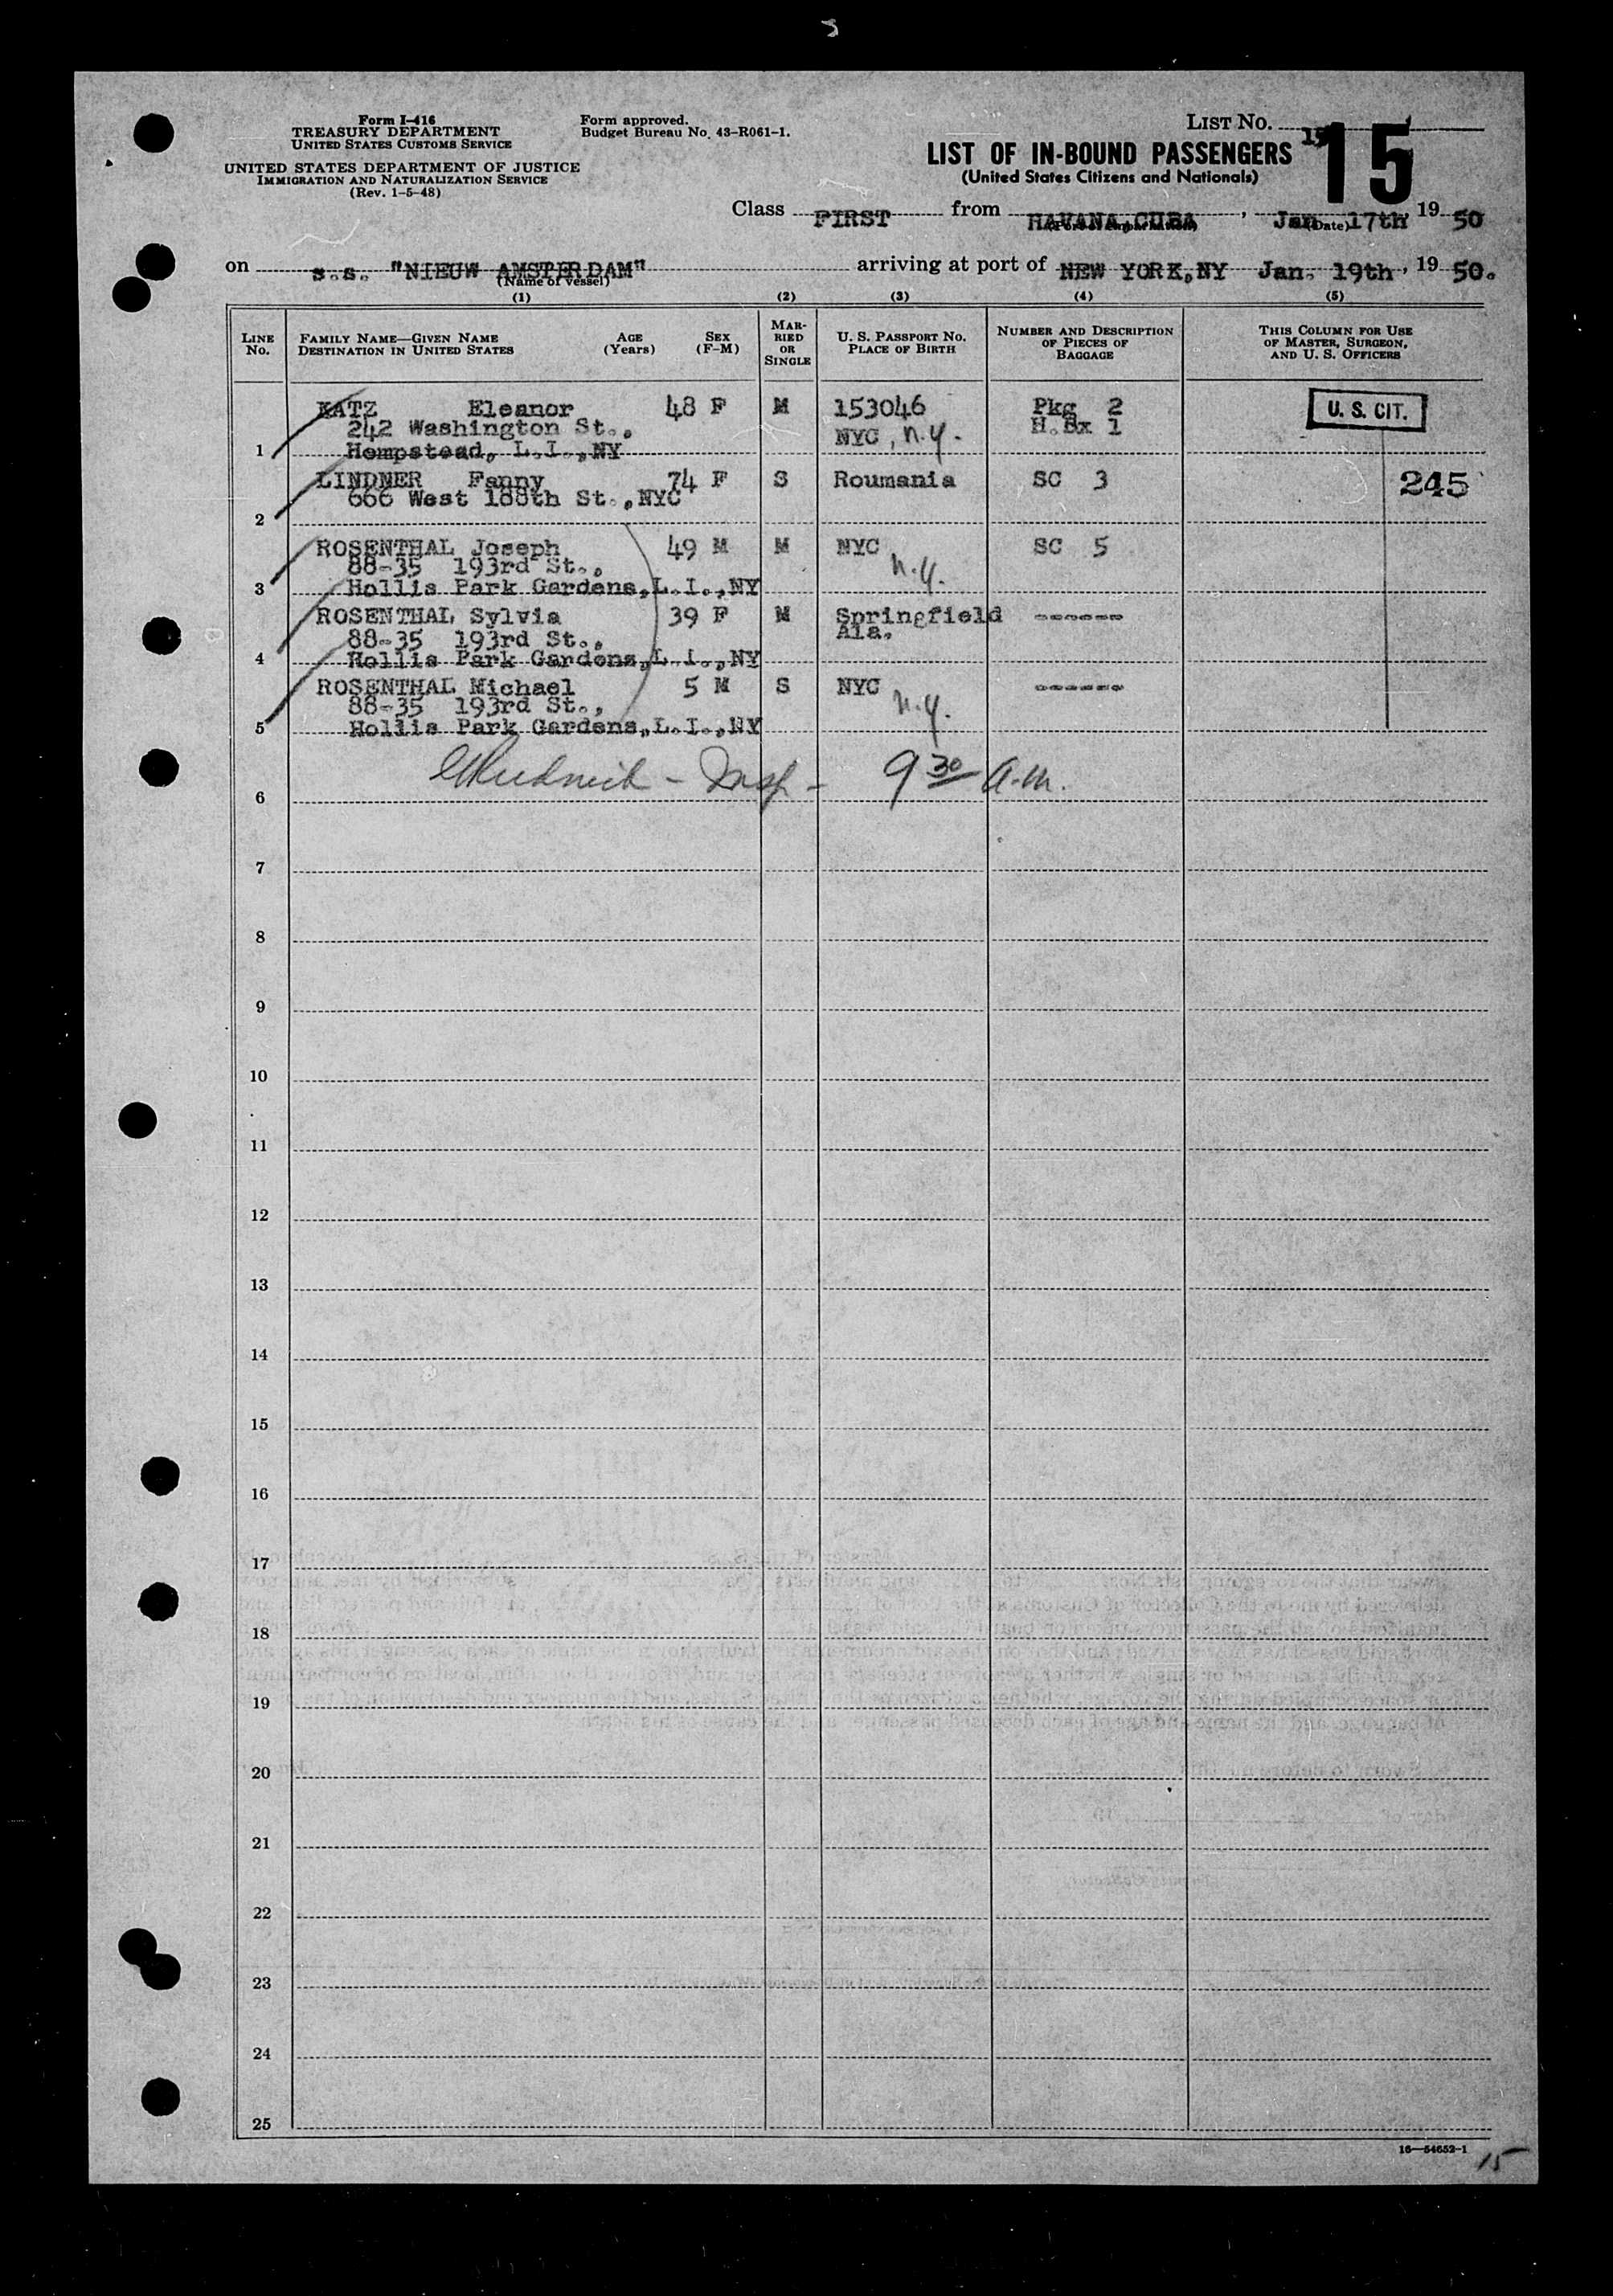 Form I-416
TREASURY DEPARTMENT
UNITED STATES CUSTOMS SERVICE
UNITED STATES DEPARTMENT OF JUSTICE
IMMIGRATION AND NATURALIZATION SERVICE
(Rev. 1-5-48)
Form approved.
Budget Bureau No. 43-R061-1.
LIST NO. 15
15
LIST OF IN-BOUND PASSENGERS
(United States Citizens and Nationals)
Class FIRST from HAVANA,CUBA, Jan. 17th, 19 50
(Date)
on s.s. "NIEUW AMSTERDAM" arriving at port of NEW YORK,NY Jan. 19th, 19 50.
(Name of vessel)
(1) (2) (3) (4) (5)
LINE No. FAMILY NAME—GIVEN NAME DESTINATION IN UNITED STATES AGE (Years) SEX (F-M) MARRIED OR SINGLE U. S. PASSPORT NO. PLACE OF BIRTH NUMBER AND DESCRIPTION OF PIECES OF BAGGAGE THIS COLUMN FOR USE OF MASTER, SURGEON, AND U. S. OFFICERS
KATZ Eleanor 48 F M 153046 Pkg 2 U. S. CIT.
242 Washington St., NYC, N.Y. H.Bx 1
1 Hempstead, L.I.,NY
LINDNER Fanny 74 F S Roumania SC 3 245
666 West 188th St.,NYC
2
ROSENTHAL Joseph 49 M M NYC SC 5
88-35 193rd St., N.Y.
3 Hollis Park Gardens,L.I.,NY
ROSENTHAL Sylvia 39 F M Springfield ------
88-35 193rd St., Ala.
4 Hollis Park Gardens,L.I.,NY
ROSENTHAL Michael 5 M S NYC ------
88-35 193rd St., N.Y.
5 Hollis Park Gardens,L.I.,NY
Insp - 9 30 a.m.
6
7
8
9
10
11
12
13
14
15
16
17
18
19
20
21
22
23
24
25
16—54652-1
15